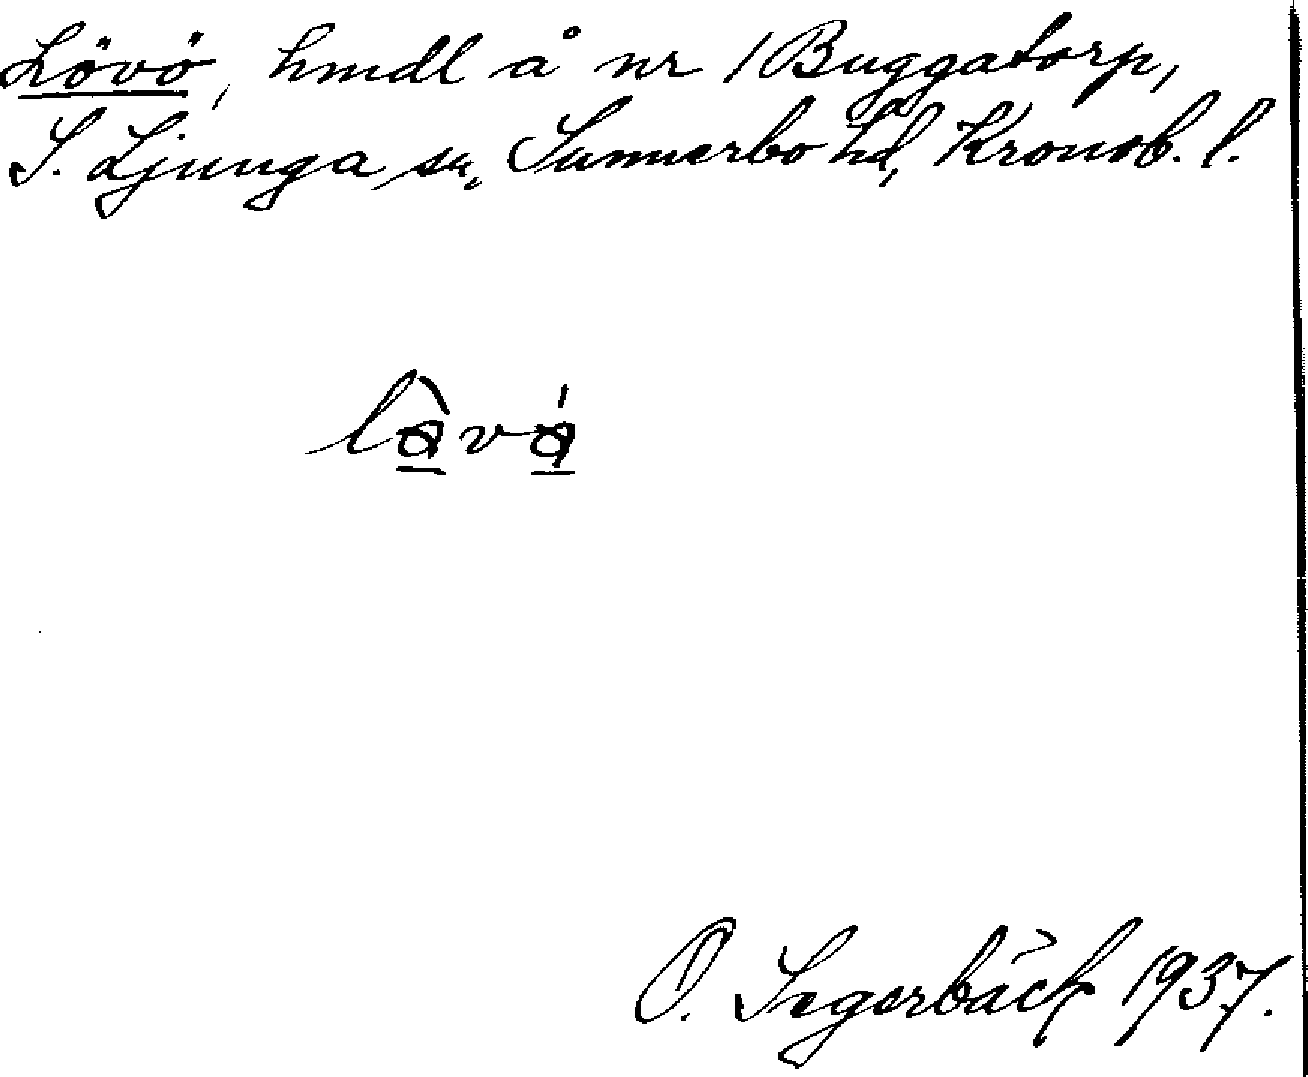 Lövö, hmdl å nr 1 Buggatorp,
S. Ljunga sn, Sunnerbo hd, Kronob. l.
O. Segerbäck 1937.